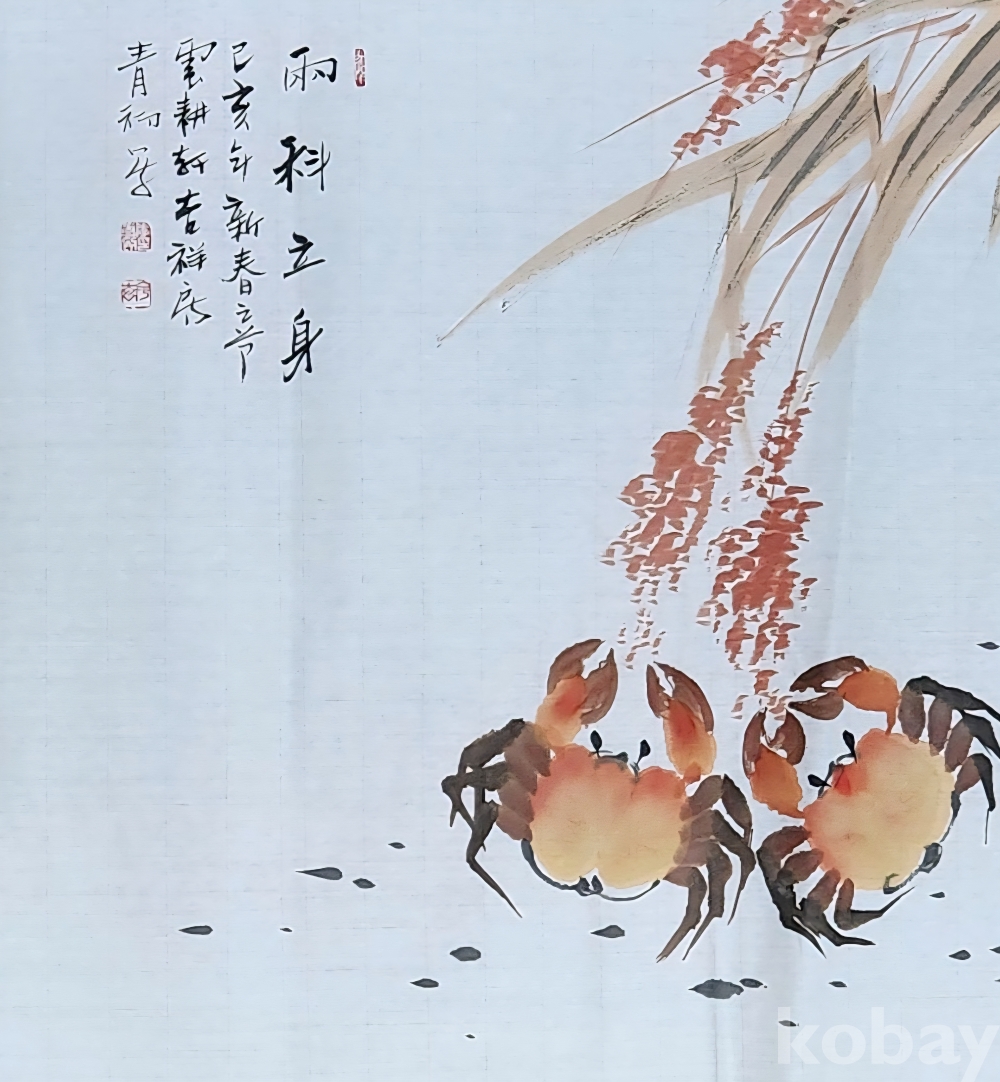 兩科立身
己亥年新春之节
雲耕軒吉祥
青
kobay